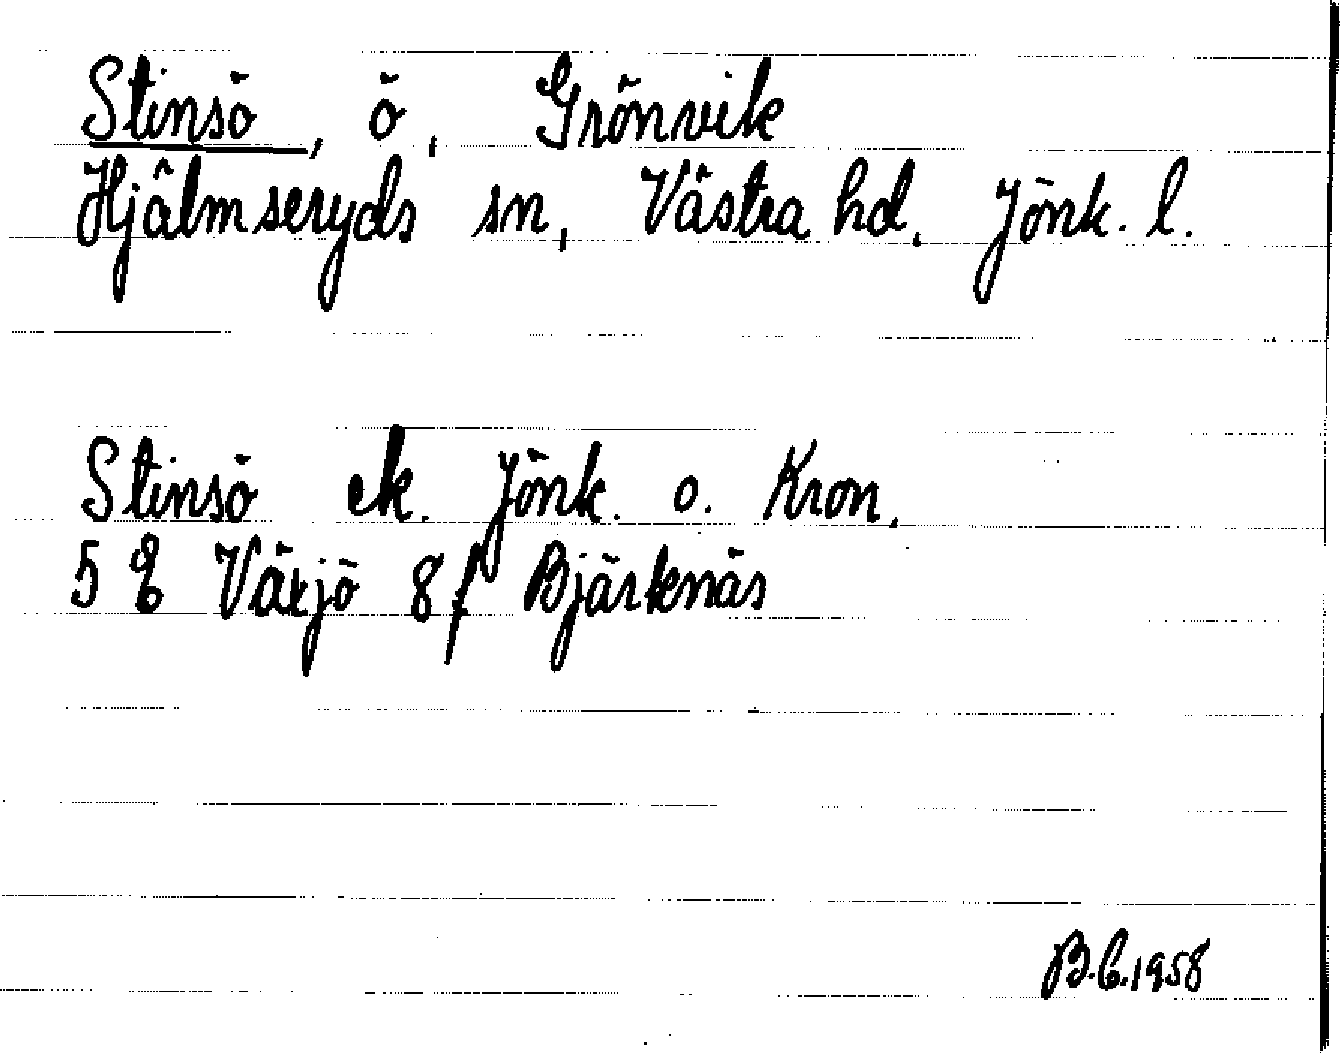 Stinsö, ö, Grönvik
Hjälmseryds sn, Västra hd. Jönk. l.
Stinsö ek. Jönk. o. Kron.
5 E Växjö 8f Bjärknäs
B.C.1958